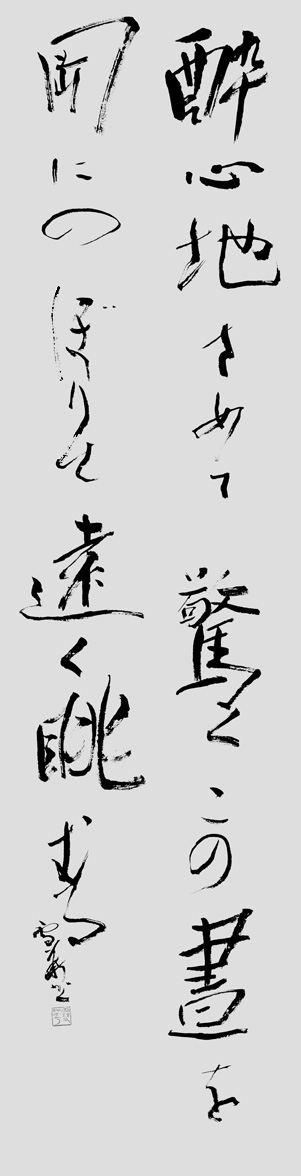 酔心地さめて驚くこの晝を
岡にのぼりて遠く眺むる